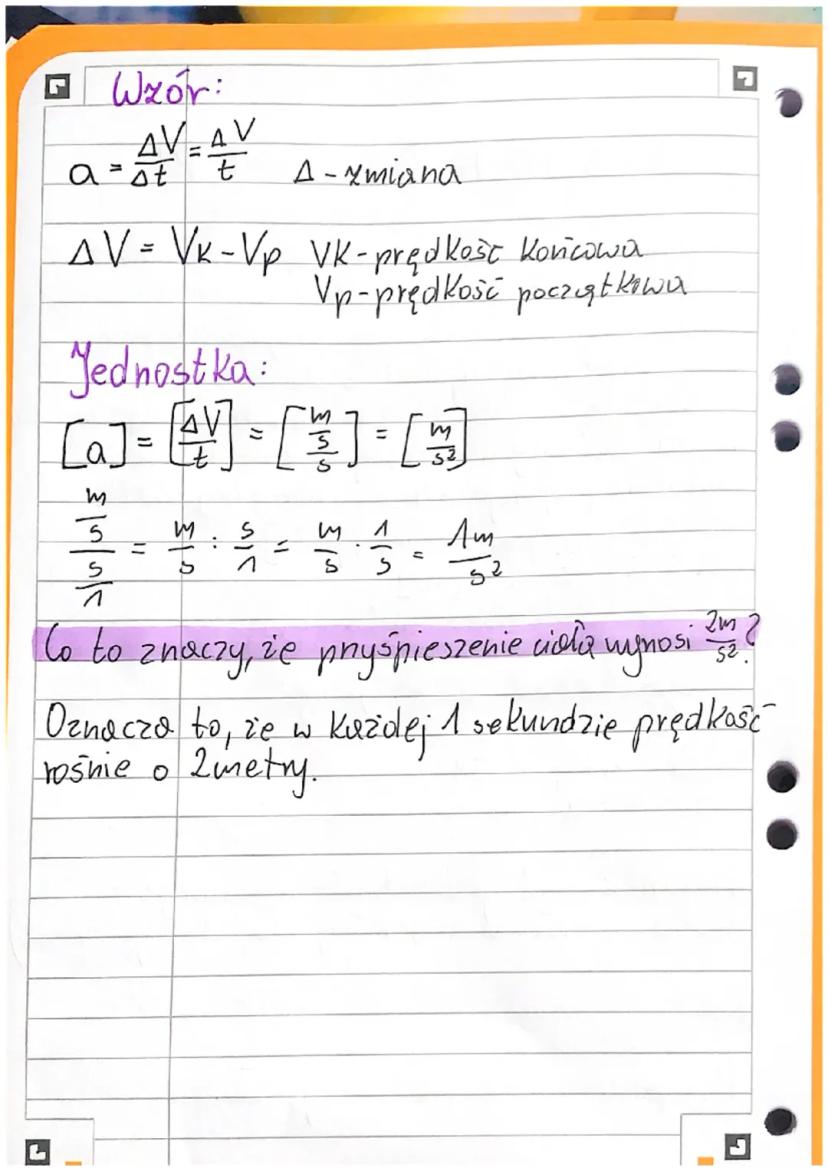 Wzór:
a = ΔV/Δt = ΔV/t   Δ - zmiana
ΔV = Vk - Vp   Vk - prędkość końcowa
Vp - prędkość początkowa
Jednostka:
[a] = [ΔV/t] = [m/s/s] = [m/s²]
m/s / s/1 = m/s : s/1 = m/s · 1/s = 1m/s²
Co to znaczy, że przyśpieszenie ciała wynosi 2m/s²?
Oznacza to, że w każdej 1 sekundzie prędkość
rośnie o 2metry.